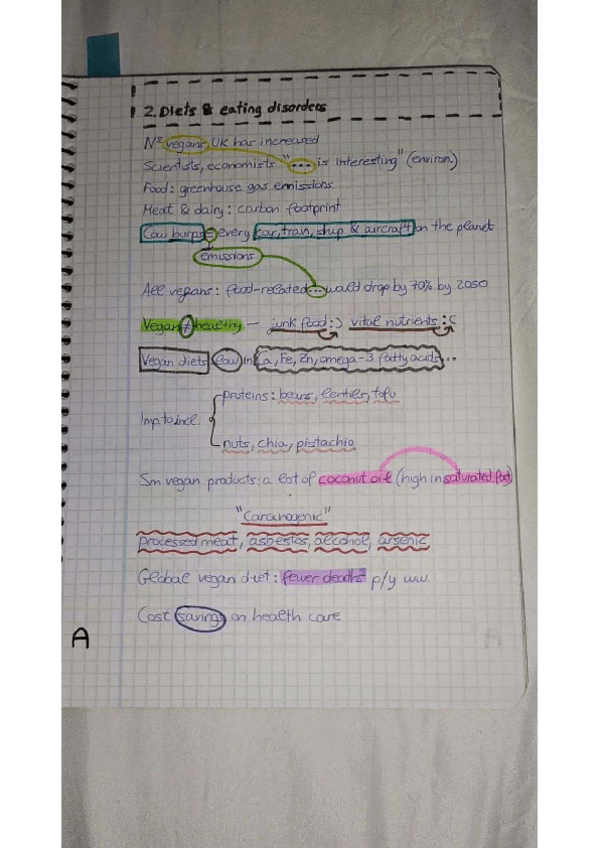 2. Diets & eating disorders
Nº vegans UK has increased
Scientists, economists "... is interesting" (environ.)
Food: greenhouse gas emissions
Meat & dairy: carbon footprint
Cow burps = every car, train, ship & aircraft on the planet
emissions
All vegans: food-related ... would drop by 70% by 2050
Vegan ≠ healthy – junk food :) vital nutrients :(
Vegan diets (low) in Ca, Fe, Zn, omega-3 (fatty acids)...
proteins: beans, lentils, tofu
Imp to incl.
nuts, chia, pistachio
Sm vegan products: a lot of coconut oil (high in saturated fat)
"Carcinogenic"
Processed meat, asbestos, alcohol, arsenic
Global vegan diet: fewer deaths p/y ww.
Cost savings on health care
A
A